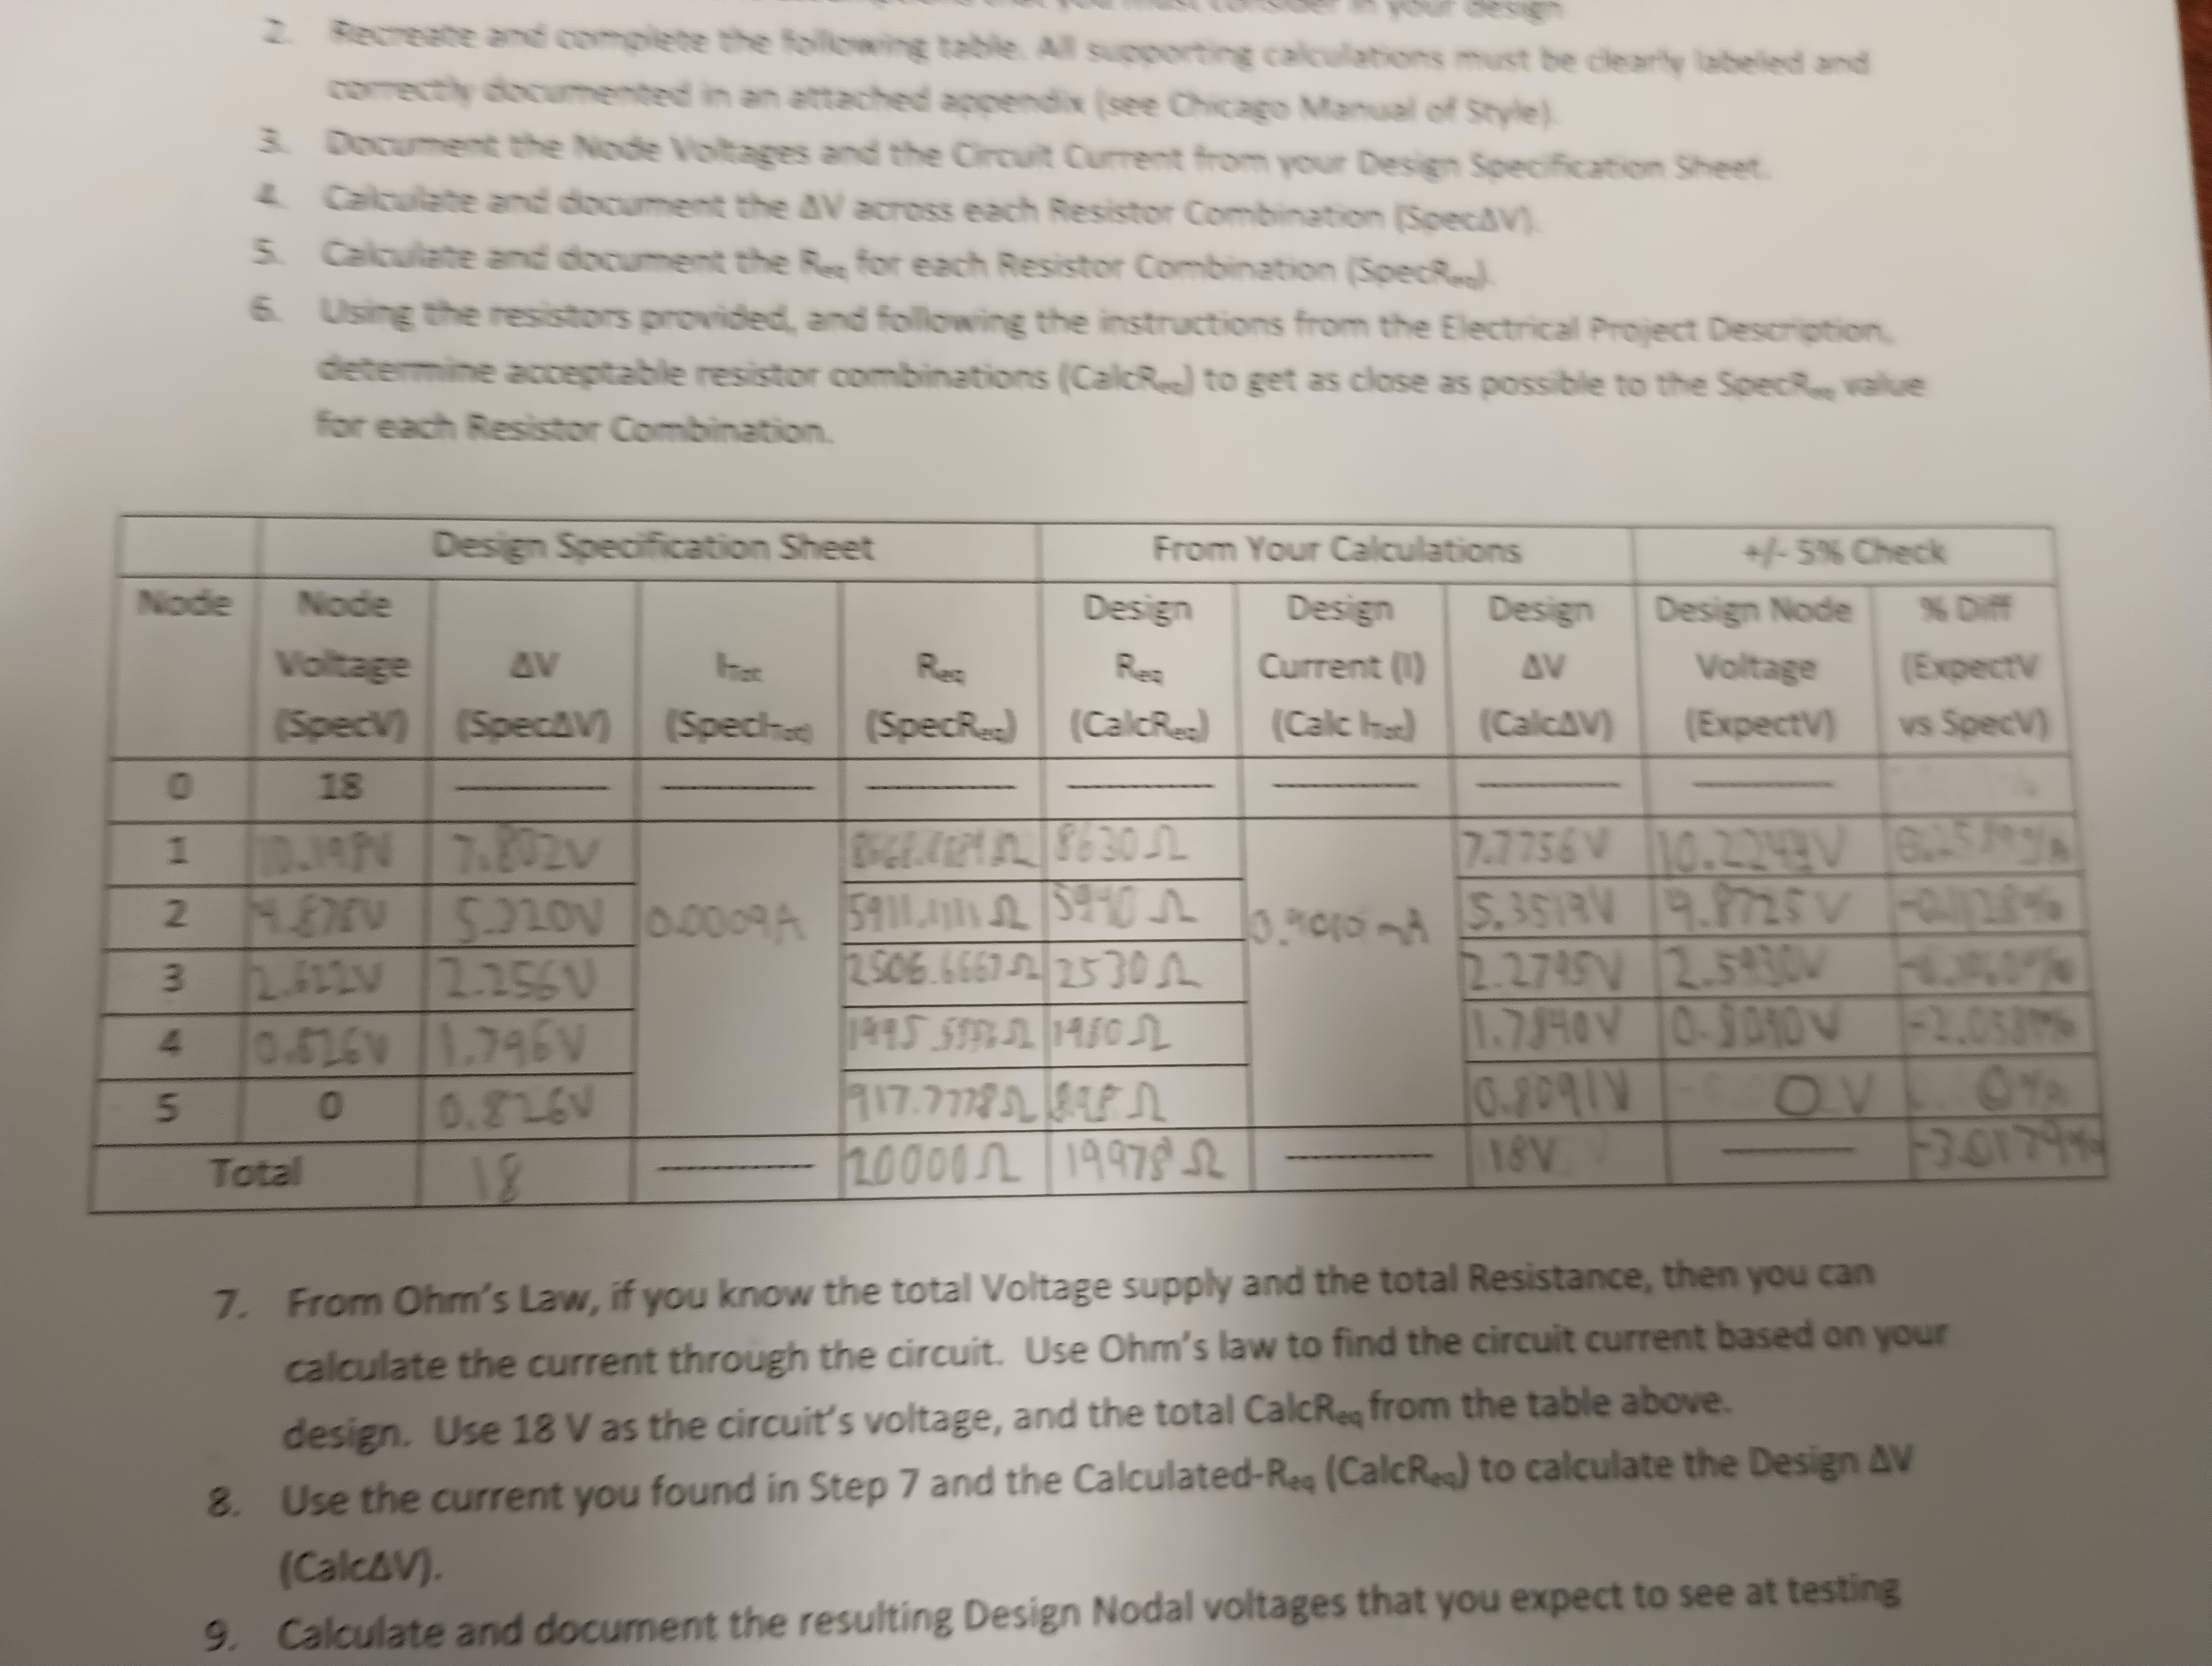 2. Recreate and complete the following table. All supporting calculations must be clearly labeled and
correctly documented in an attached appendix (see Chicago Manual of Style).
3. Document the Node Voltages and the Circuit Current from your Design Specification Sheet.
4. Calculate and document the ΔV across each Resistor Combination (SpecΔV).
5. Calculate and document the Req for each Resistor Combination (SpecReq).
6. Using the resistors provided, and following the instructions from the Electrical Project Description,
determine acceptable resistor combinations (CalcReq) to get as close as possible to the SpecReq value
for each Resistor Combination.
Design Specification Sheet From Your Calculations +/- 5% Check
Node Node Voltage (SpecV) ΔV (SpecΔV) Itot (SpecItot) Req (SpecReq) Design Req (CalcReq) Design Current (I) (Calc Itot) Design ΔV (CalcΔV) Design Node Voltage (ExpectV) % Diff (ExpectV vs SpecV)
0 18 ---------- ---------- ---------- ---------- ---------- ---------- ----------
1 10.198V 7.802V 8630Ω 7.7756V 10.2244V
2 4.878V 5.320V 0.0009A 5911.1111Ω 5940Ω 5.3519V 4.8725V
3 2.622V 2.256V 2506.6667Ω 2530Ω 2.2795V
4 0.826V 1.796V 1980Ω 1.7840V 0.8090V
5 0 0.826V 917.7778Ω 898Ω 0.8091V 0V 0%
Total 18 ---------- 20000Ω 19978Ω ---------- 18V ----------
7. From Ohm's Law, if you know the total Voltage supply and the total Resistance, then you can
calculate the current through the circuit. Use Ohm's law to find the circuit current based on your
design. Use 18 V as the circuit's voltage, and the total CalcReq from the table above.
8. Use the current you found in Step 7 and the Calculated-Req (CalcReq) to calculate the Design ΔV
(CalcΔV).
9. Calculate and document the resulting Design Nodal voltages that you expect to see at testing